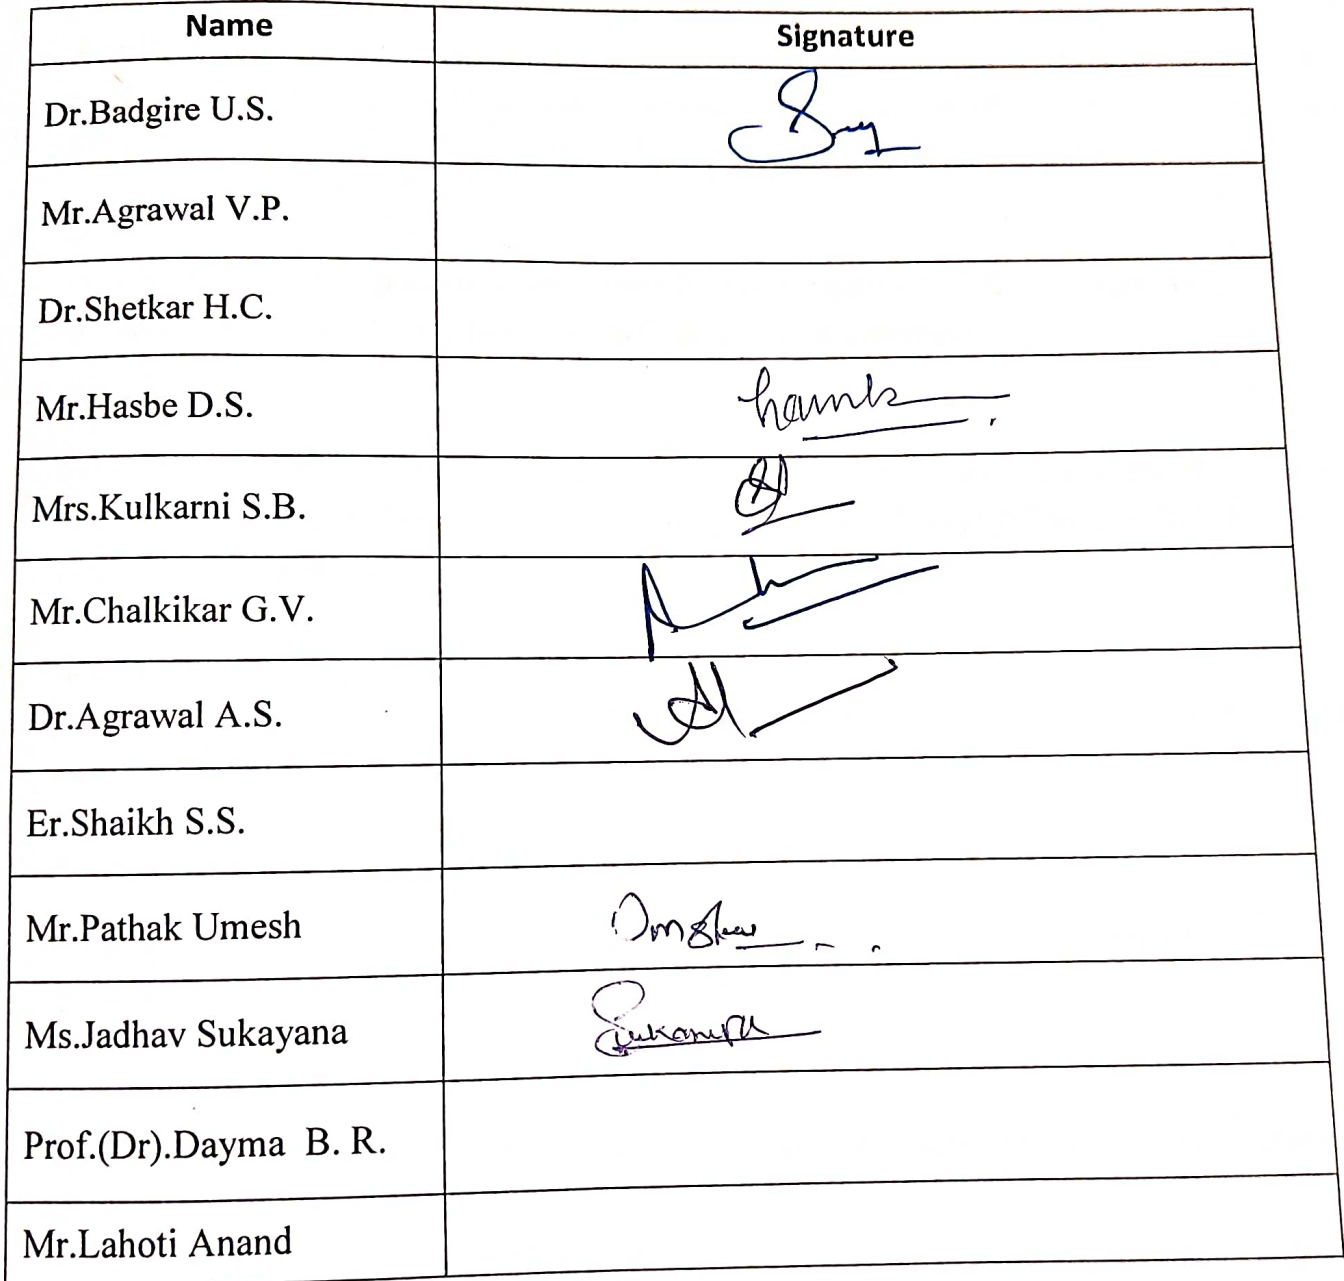 Name Signature
Dr.Badgire U.S.
Mr.Agrawal V.P.
Dr.Shetkar H.C.
Mr.Hasbe D.S.
Mrs.Kulkarni S.B.
Mr.Chalkikar G.V.
Dr.Agrawal A.S.
Er.Shaikh S.S.
Mr.Pathak Umesh
Ms.Jadhav Sukayana
Prof.(Dr).Dayma B. R.
Mr.Lahoti Anand